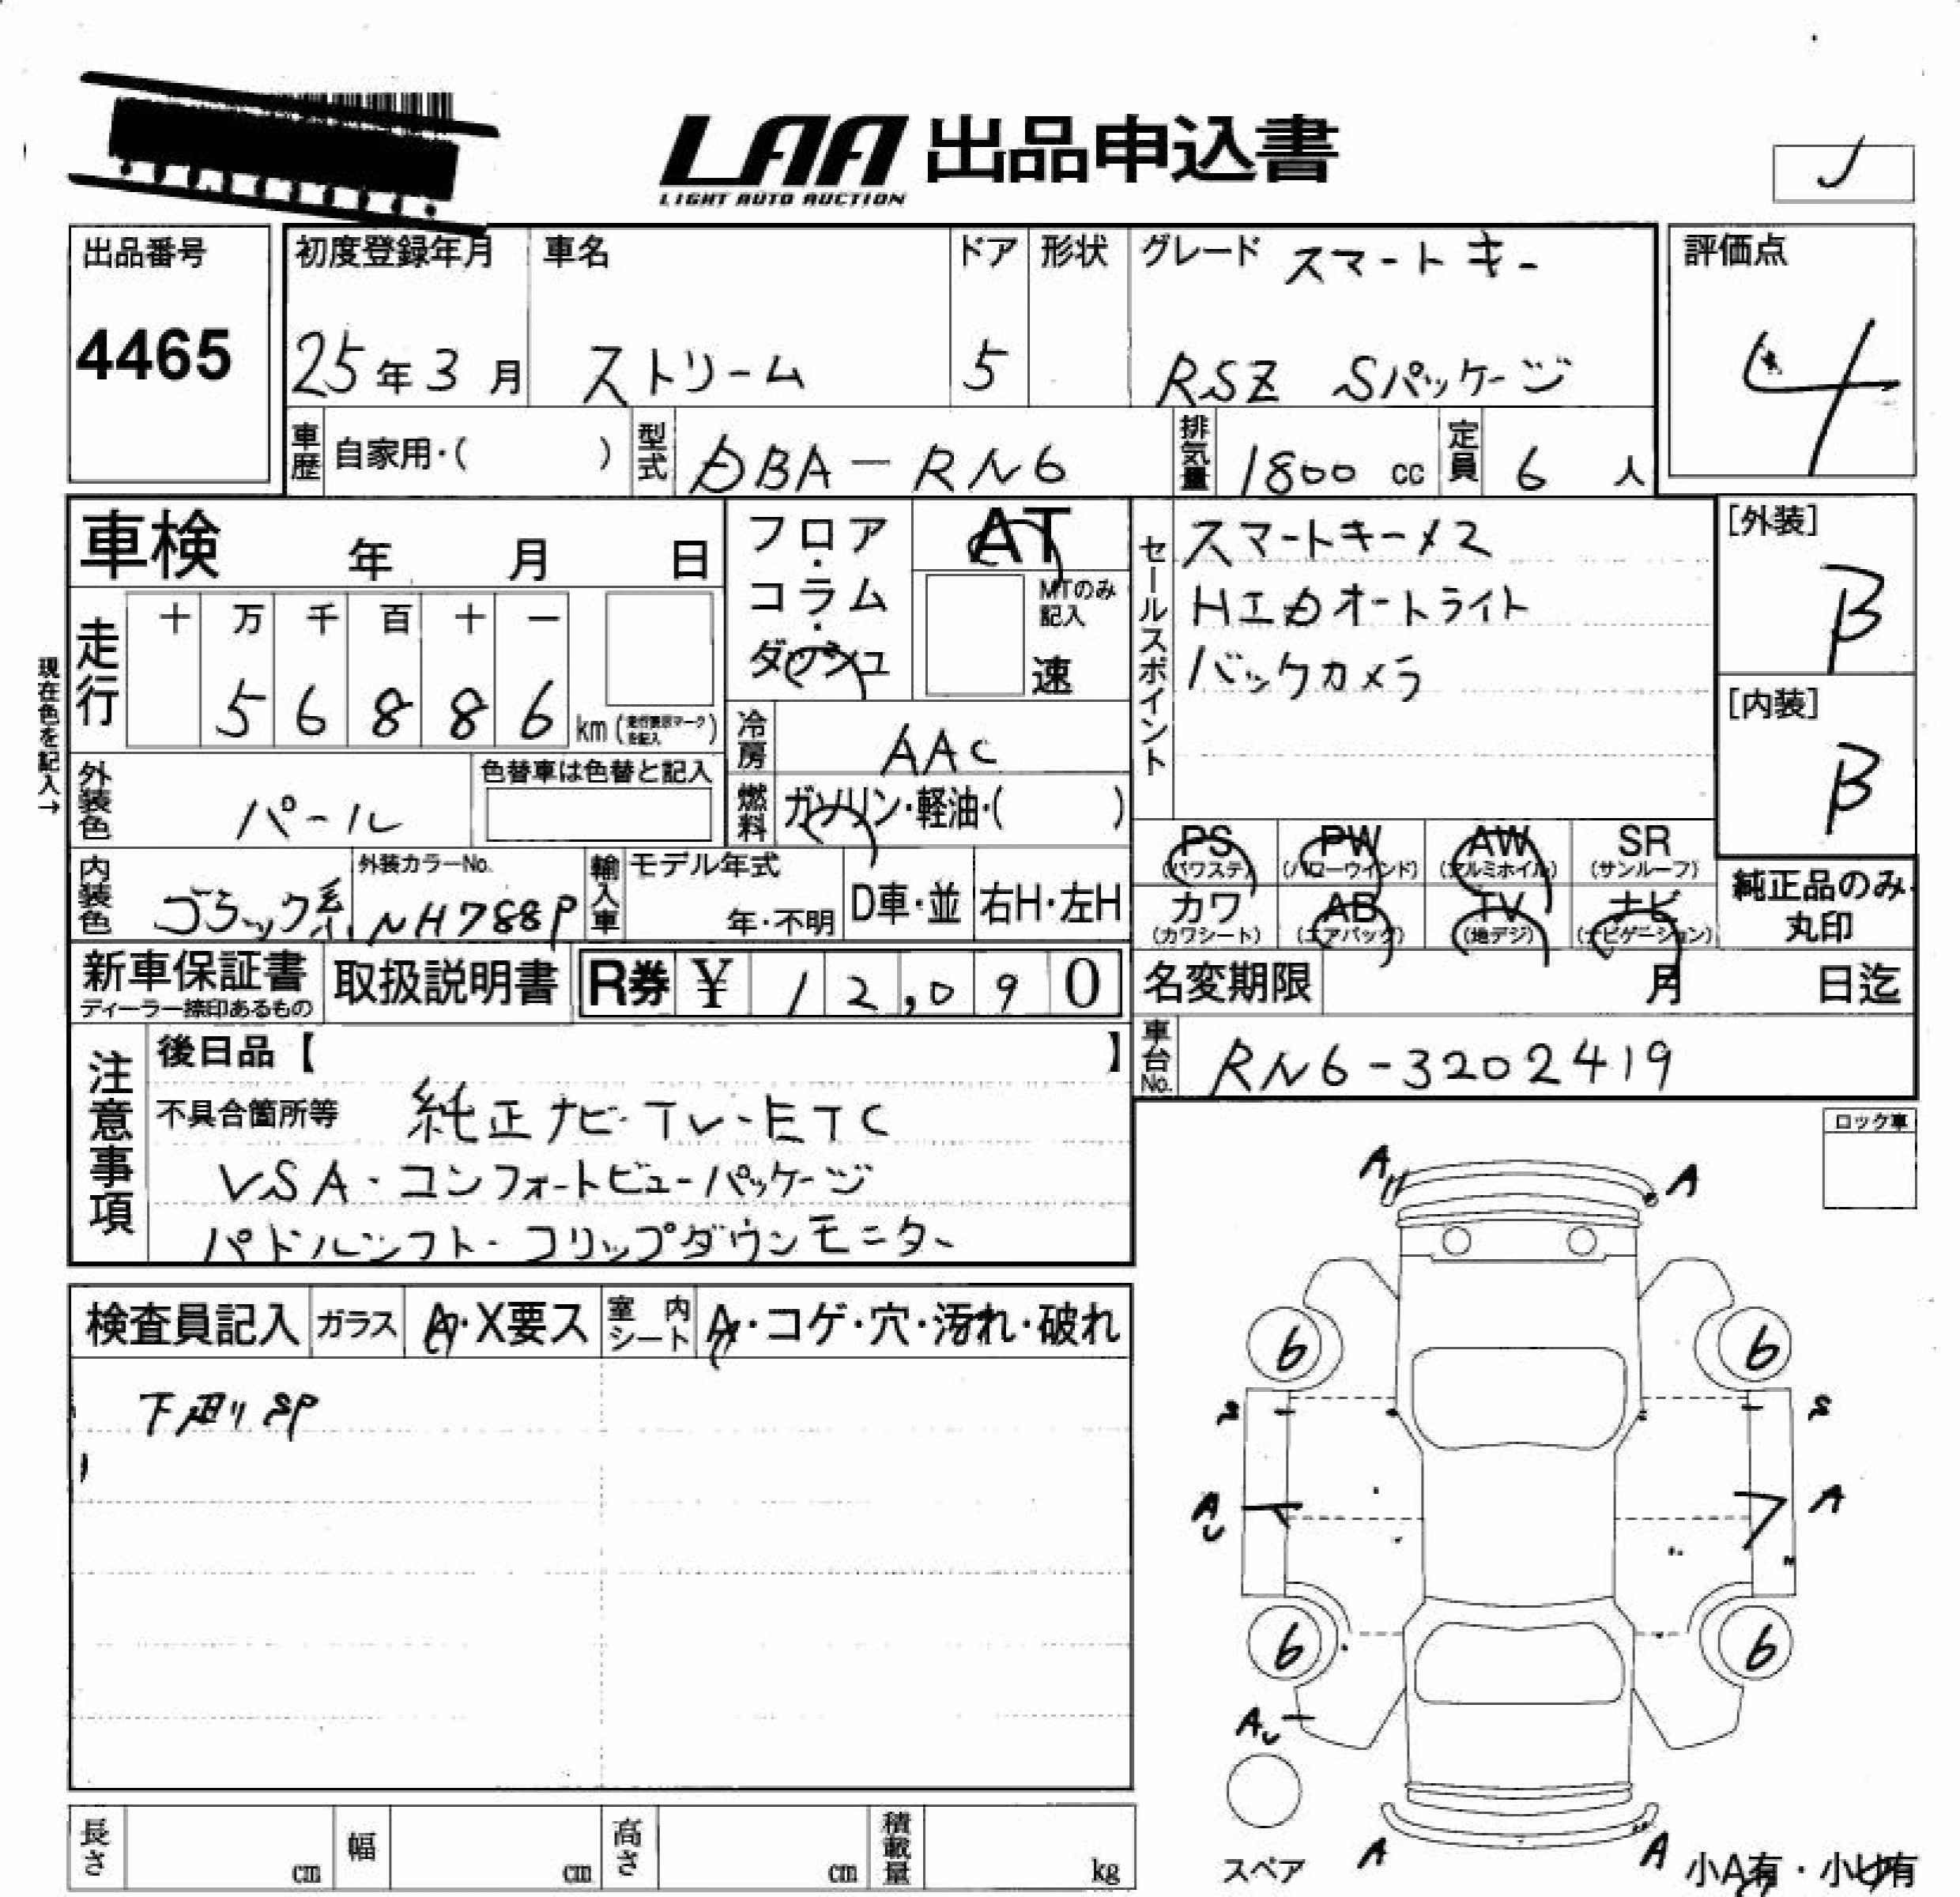 LAA 出品申込書
LIGHT AUTO AUCTION
出品番号
4465
初度登録年月
25年3月
車名
ストリーム
ドア
5
形状
グレード スマートキー
RSZ Sパッケージ
評価点
4
車歴 自家用・( )
型式 DBA-RN6
排気量 1800 cc
定員 6 人
車検 年 月 日
フロア・コラム・ダッシュ
AT
MTのみ記入
速
セールスポイント
スマートキー×2
HIDオートライト
バックカメラ
[外装]
B
[内装]
B
現在色を記入→
走行
十 万 千 百 十 一
5 6 8 8 6 km
冷房 AAC
燃料 ガソリン・軽油・( )
外装色 パール
色替車は色替と記入
内装色 ブラック系
外装カラーNo.
NH788P
輸入車
モデル年式
年・不明
D車・並
右H・左H
PS (パワステ)
PW (パワーウインド)
AW (アルミホイル)
SR (サンルーフ)
カワ (カワシート)
AB (エアバッグ)
TV (地デジ)
ナビ (ナビゲーション)
純正品のみ丸印
新車保証書
ディーラー捺印あるもの
取扱説明書
R券 ¥ 12,090
名変期限 月 日迄
車台No. RN6-3202419
注意事項
後日品【 】
不具合箇所等 純正ナビ・TV・ETC
VSA・コンフォートビューパッケージ
パドルシフト・フリップダウンモニター
ロック車
検査員記入
ガラス A・X要ス
室内シート A・コゲ・穴・汚れ・破れ
下廻りSP
A A
6 6
A A
6 6
A
スペア
A A
小A有・小U有
長さ cm
幅 cm
高さ cm
積載量 kg